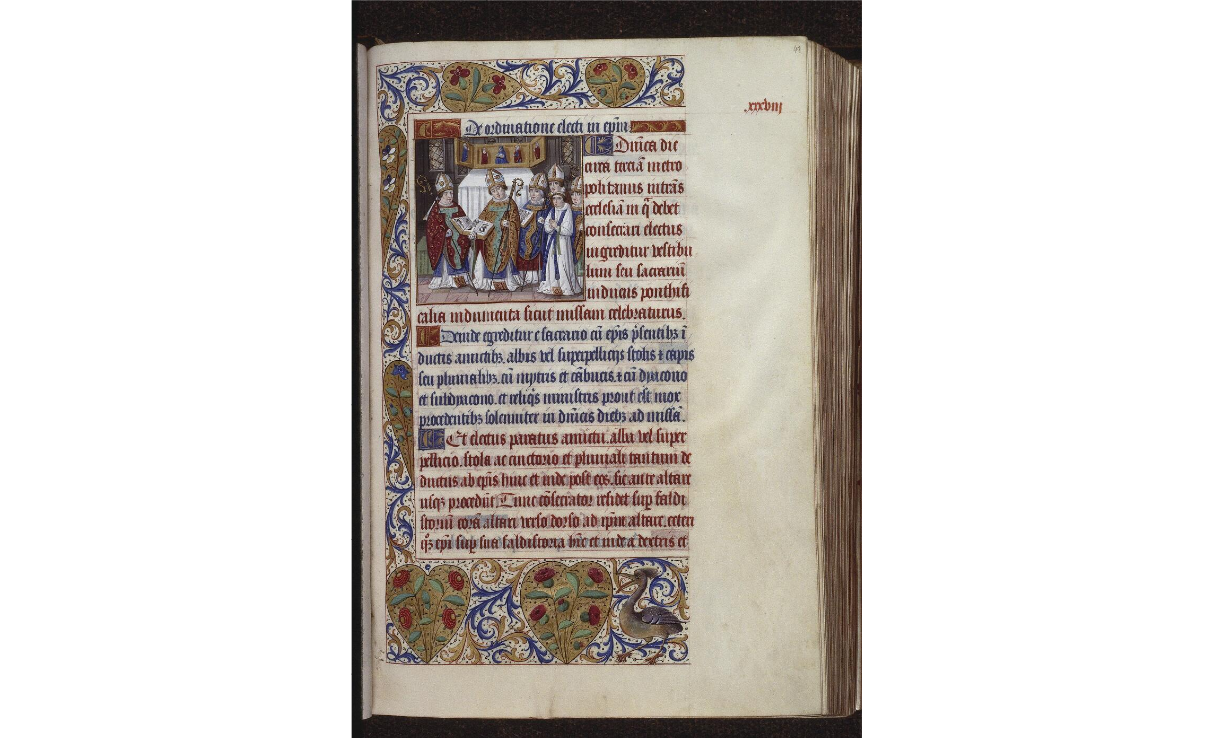 xxxviij
De ordinatione electi in epm
Dnica die
circa terciã metro
politanus intrãs
ecclesiã in q̃ debet
consecrari electus
ingreditur vestibu
lum seu sacrariũ
induens pontifi
calia indumenta sicut missam celebraturus.
Deinde egreditur e sacrario cũ epis p̃sentibꝫ ĩ
ductis amictibꝫ, albis vel superpellicijs stolis ⁊ capis
seu pluvialibꝫ, cũ mytris et cãbucis, ⁊ cũ dyacono
et subdyacono, et reliqis ministris prout est mox
procedentibꝫ solenniter in dñicis diebꝫ ad missã.
Et electus paratus amictu, alba vel super
pellicio, stola ac cinctorio et pluviali tantum de
ductus ab epis hinc et inde post eos, sic ante altare
usqꝫ procedũt. Tunc cõsecrator residet sup faldi
storiũ corã altari verso dorso ad ipm altare, ceteri
qꝫ epi sup sua faldistoria hĩc et inde a dextris et